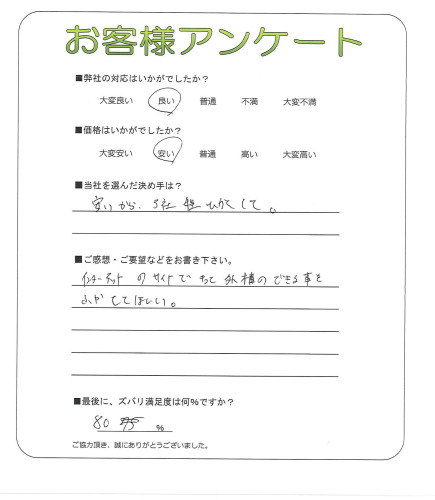 お客様アンケート
■弊社の対応はいかがでしたか？
大変良い 良い 普通 不満 大変不満
■価格はいかがでしたか？
大変安い 安い 普通 高い 大変高い
■当社を選んだ決め手は？
安いから、3社 程 して。
■ご感想・ご要望などをお書き下さい。
インターネット のサイトで もっと 外構のできる事を
ふかしてほしい。
■最後に、ズバリ満足度は何％ですか？
80 75 %
ご協力頂き、誠にありがとうございました。